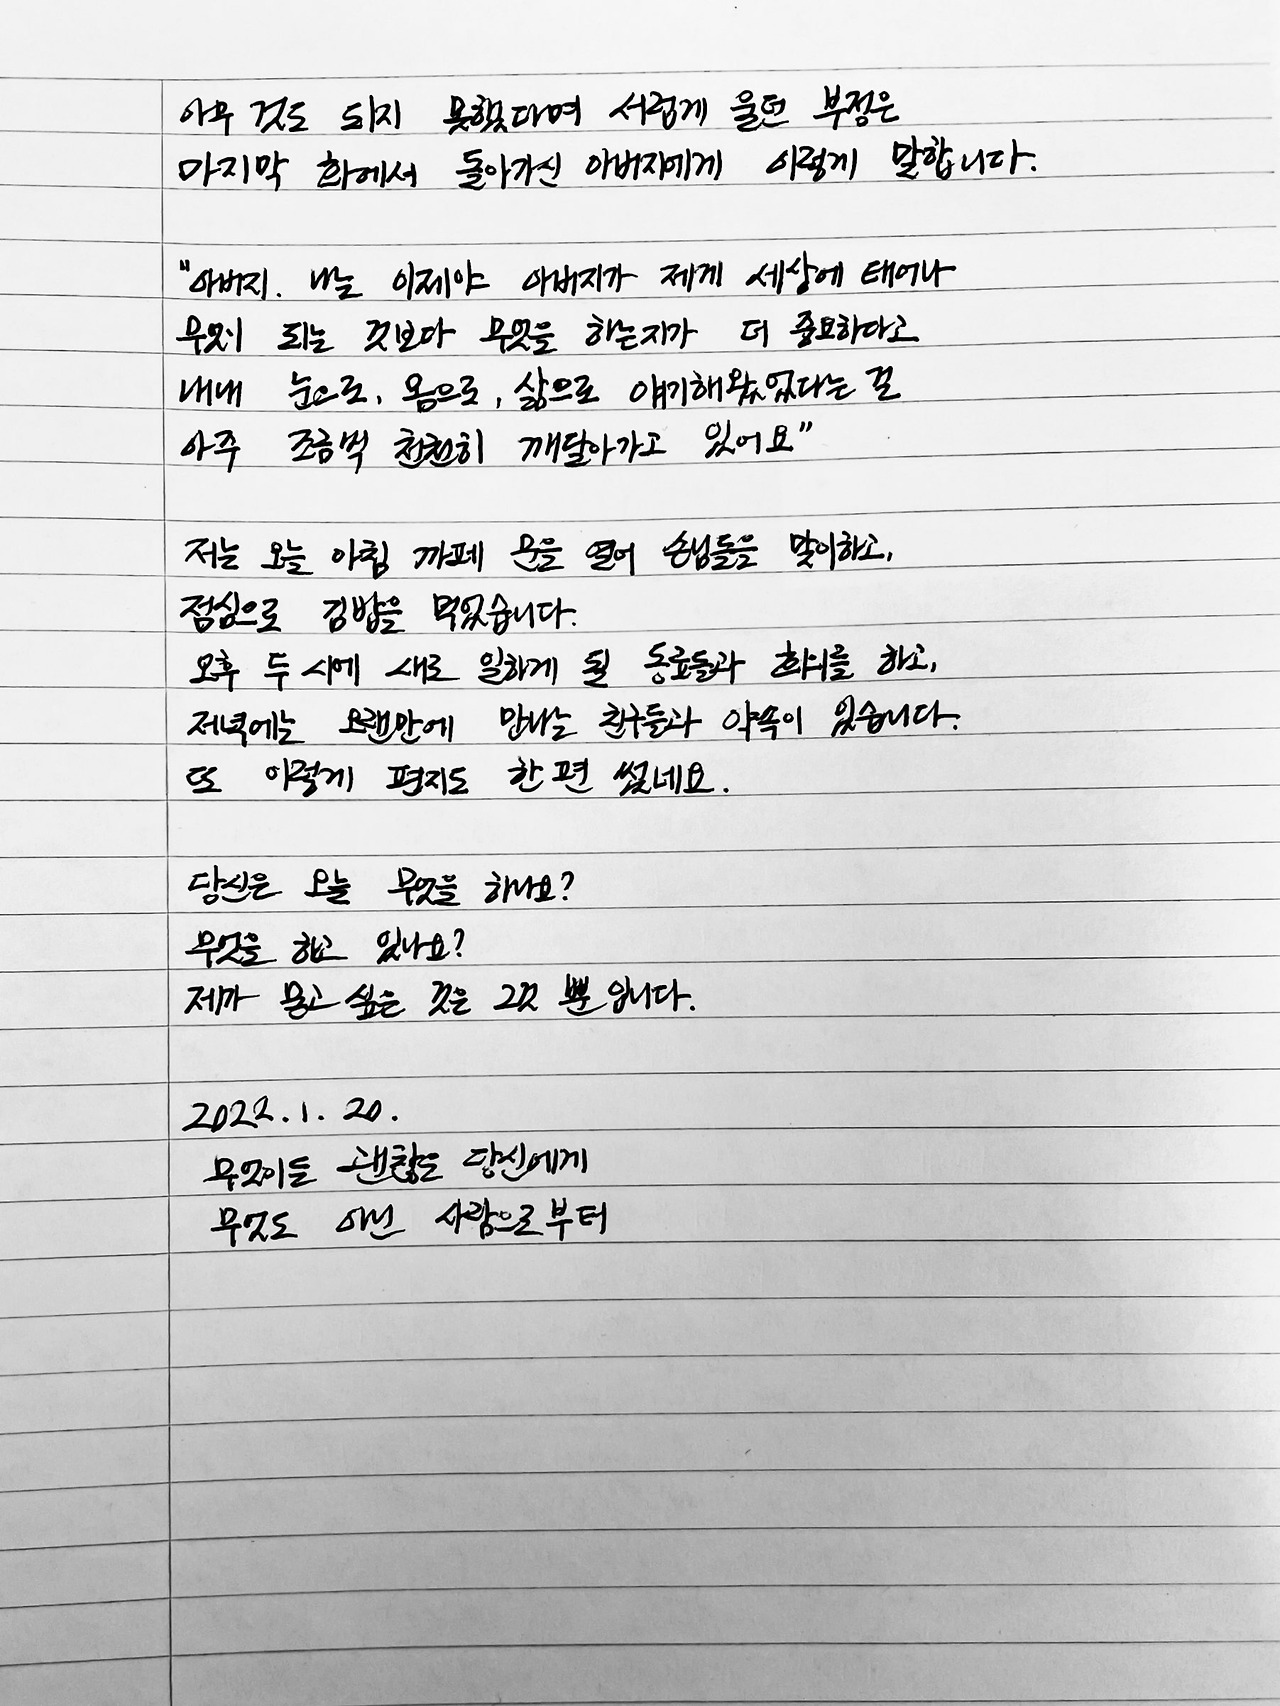 아무 것도 되지 못했다며 서럽게 울던 부정은
마지막 화에서 돌아가신 아버지에게 이렇게 말합니다.
"아버지. 나는 이제야 아버지가 제게 세상에 태어나
무엇이 되는 것보다 무엇을 하는지가 더 중요하다고
내내 눈으로, 몸으로, 삶으로 얘기해왔었다는 걸
아주 조금씩 천천히 깨달아가고 있어요"
저는 오늘 아침 까페 문을 열어 손님들을 맞이하고,
점심으로 김밥을 먹었습니다.
오후 두 시에 새로 일하게 될 동료들과 회의를 하고,
저녁에는 오랜만에 만나는 친구들과 약속이 있습니다.
또 이렇게 편지도 한 편 썼네요.
당신은 오늘 무엇을 하나요?
무엇을 하고 있나요?
제가 묻고 싶은 것은 그것 뿐입니다.
2022. 1. 20.
무엇이든 괜찮을 당신에게
무엇도 아닌 사람으로부터